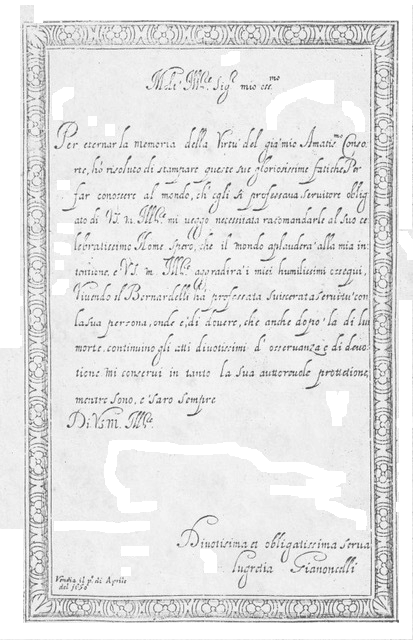 Molt' Ill.re Sig.r mio oss.mo
Per eternar la memoria della Virtu' del gia' mio Amatis.mo Conso=
rte, hò risoluto di stampare queste sue gloriosissime fatiche Per
far conoscere al mondo, ch' egli si professava servitore oblig
ato di V.S. m. Ill.re mi veggo necessitata racomandarle al suo ce
lebratissimo Nome Spero, che il mondo aplauderà alla mia in=
tentione, e V.S. m. Ill.re aggradirà i miei humilissimi ossequi,
Vivendo il Bernardelli hà professata sviscerata servitù con
la sua persona, onde è di dovere, che anche dopò la di lui
morte, continuino gli atti divotissimi d' osservanza e di devo
tione mi conservi in tanto la sua auttorevole protetione,
mentre sono, e sarò sempre
Di V.S. m. Ill.re
Divotisima et obligatissima serva
lugretia Gianoncelli
Venetia il p.o di Aprile
del 1650